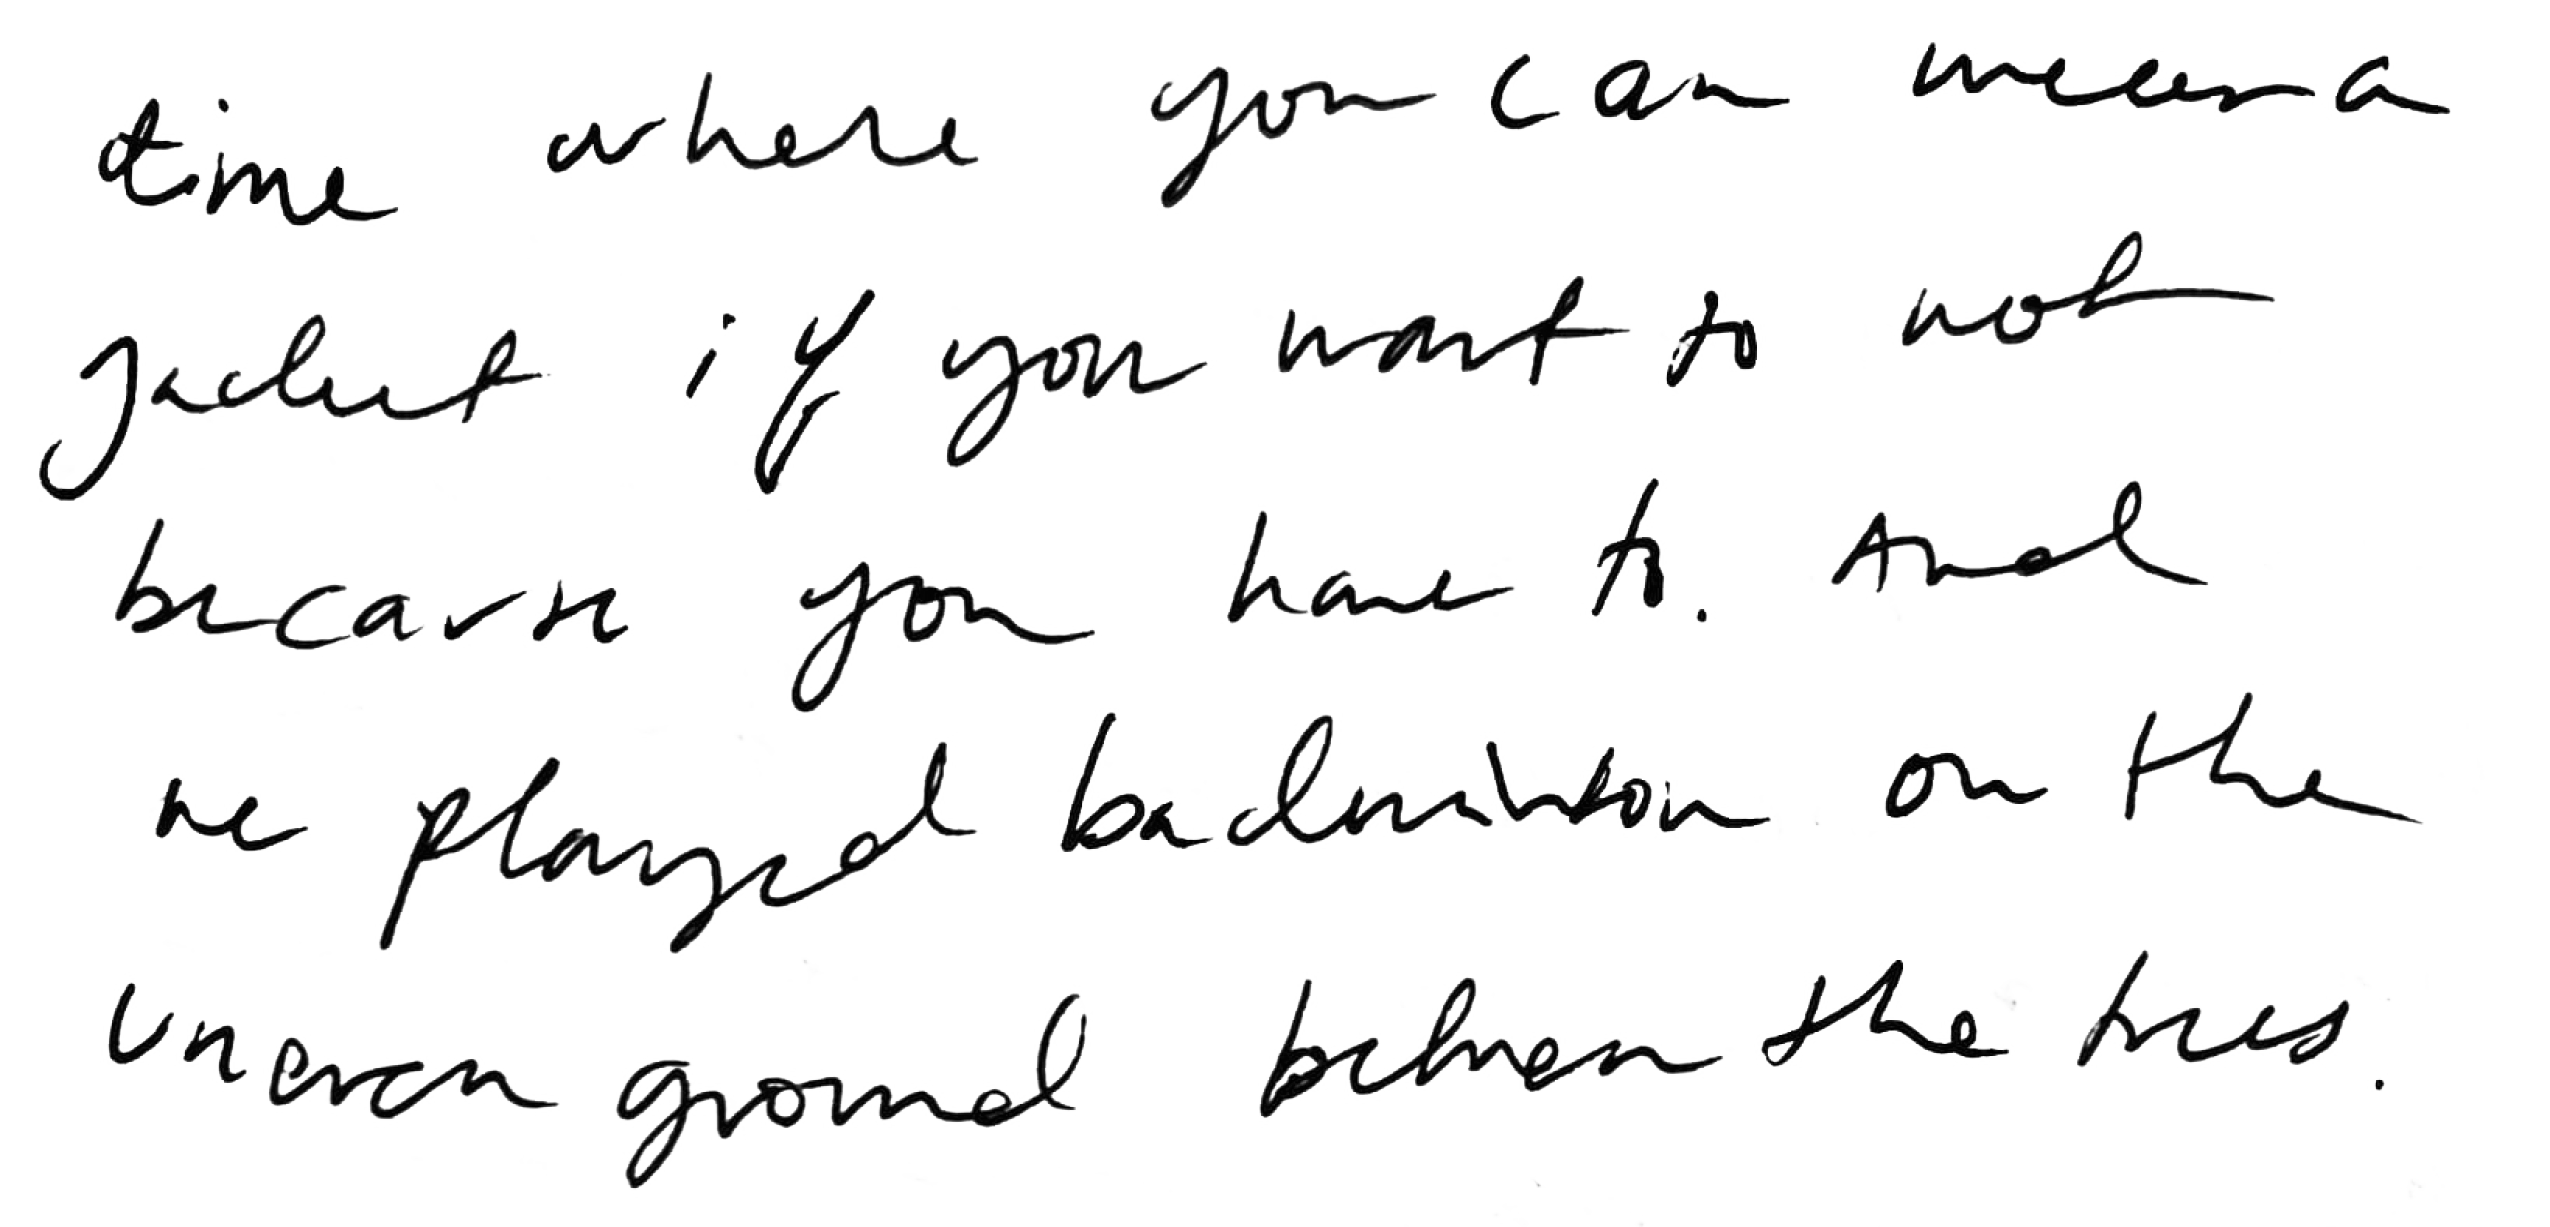 time where you can wear a
jacket if you want to not
because you have to. And
we played badminton on the
uneven ground between the trees.